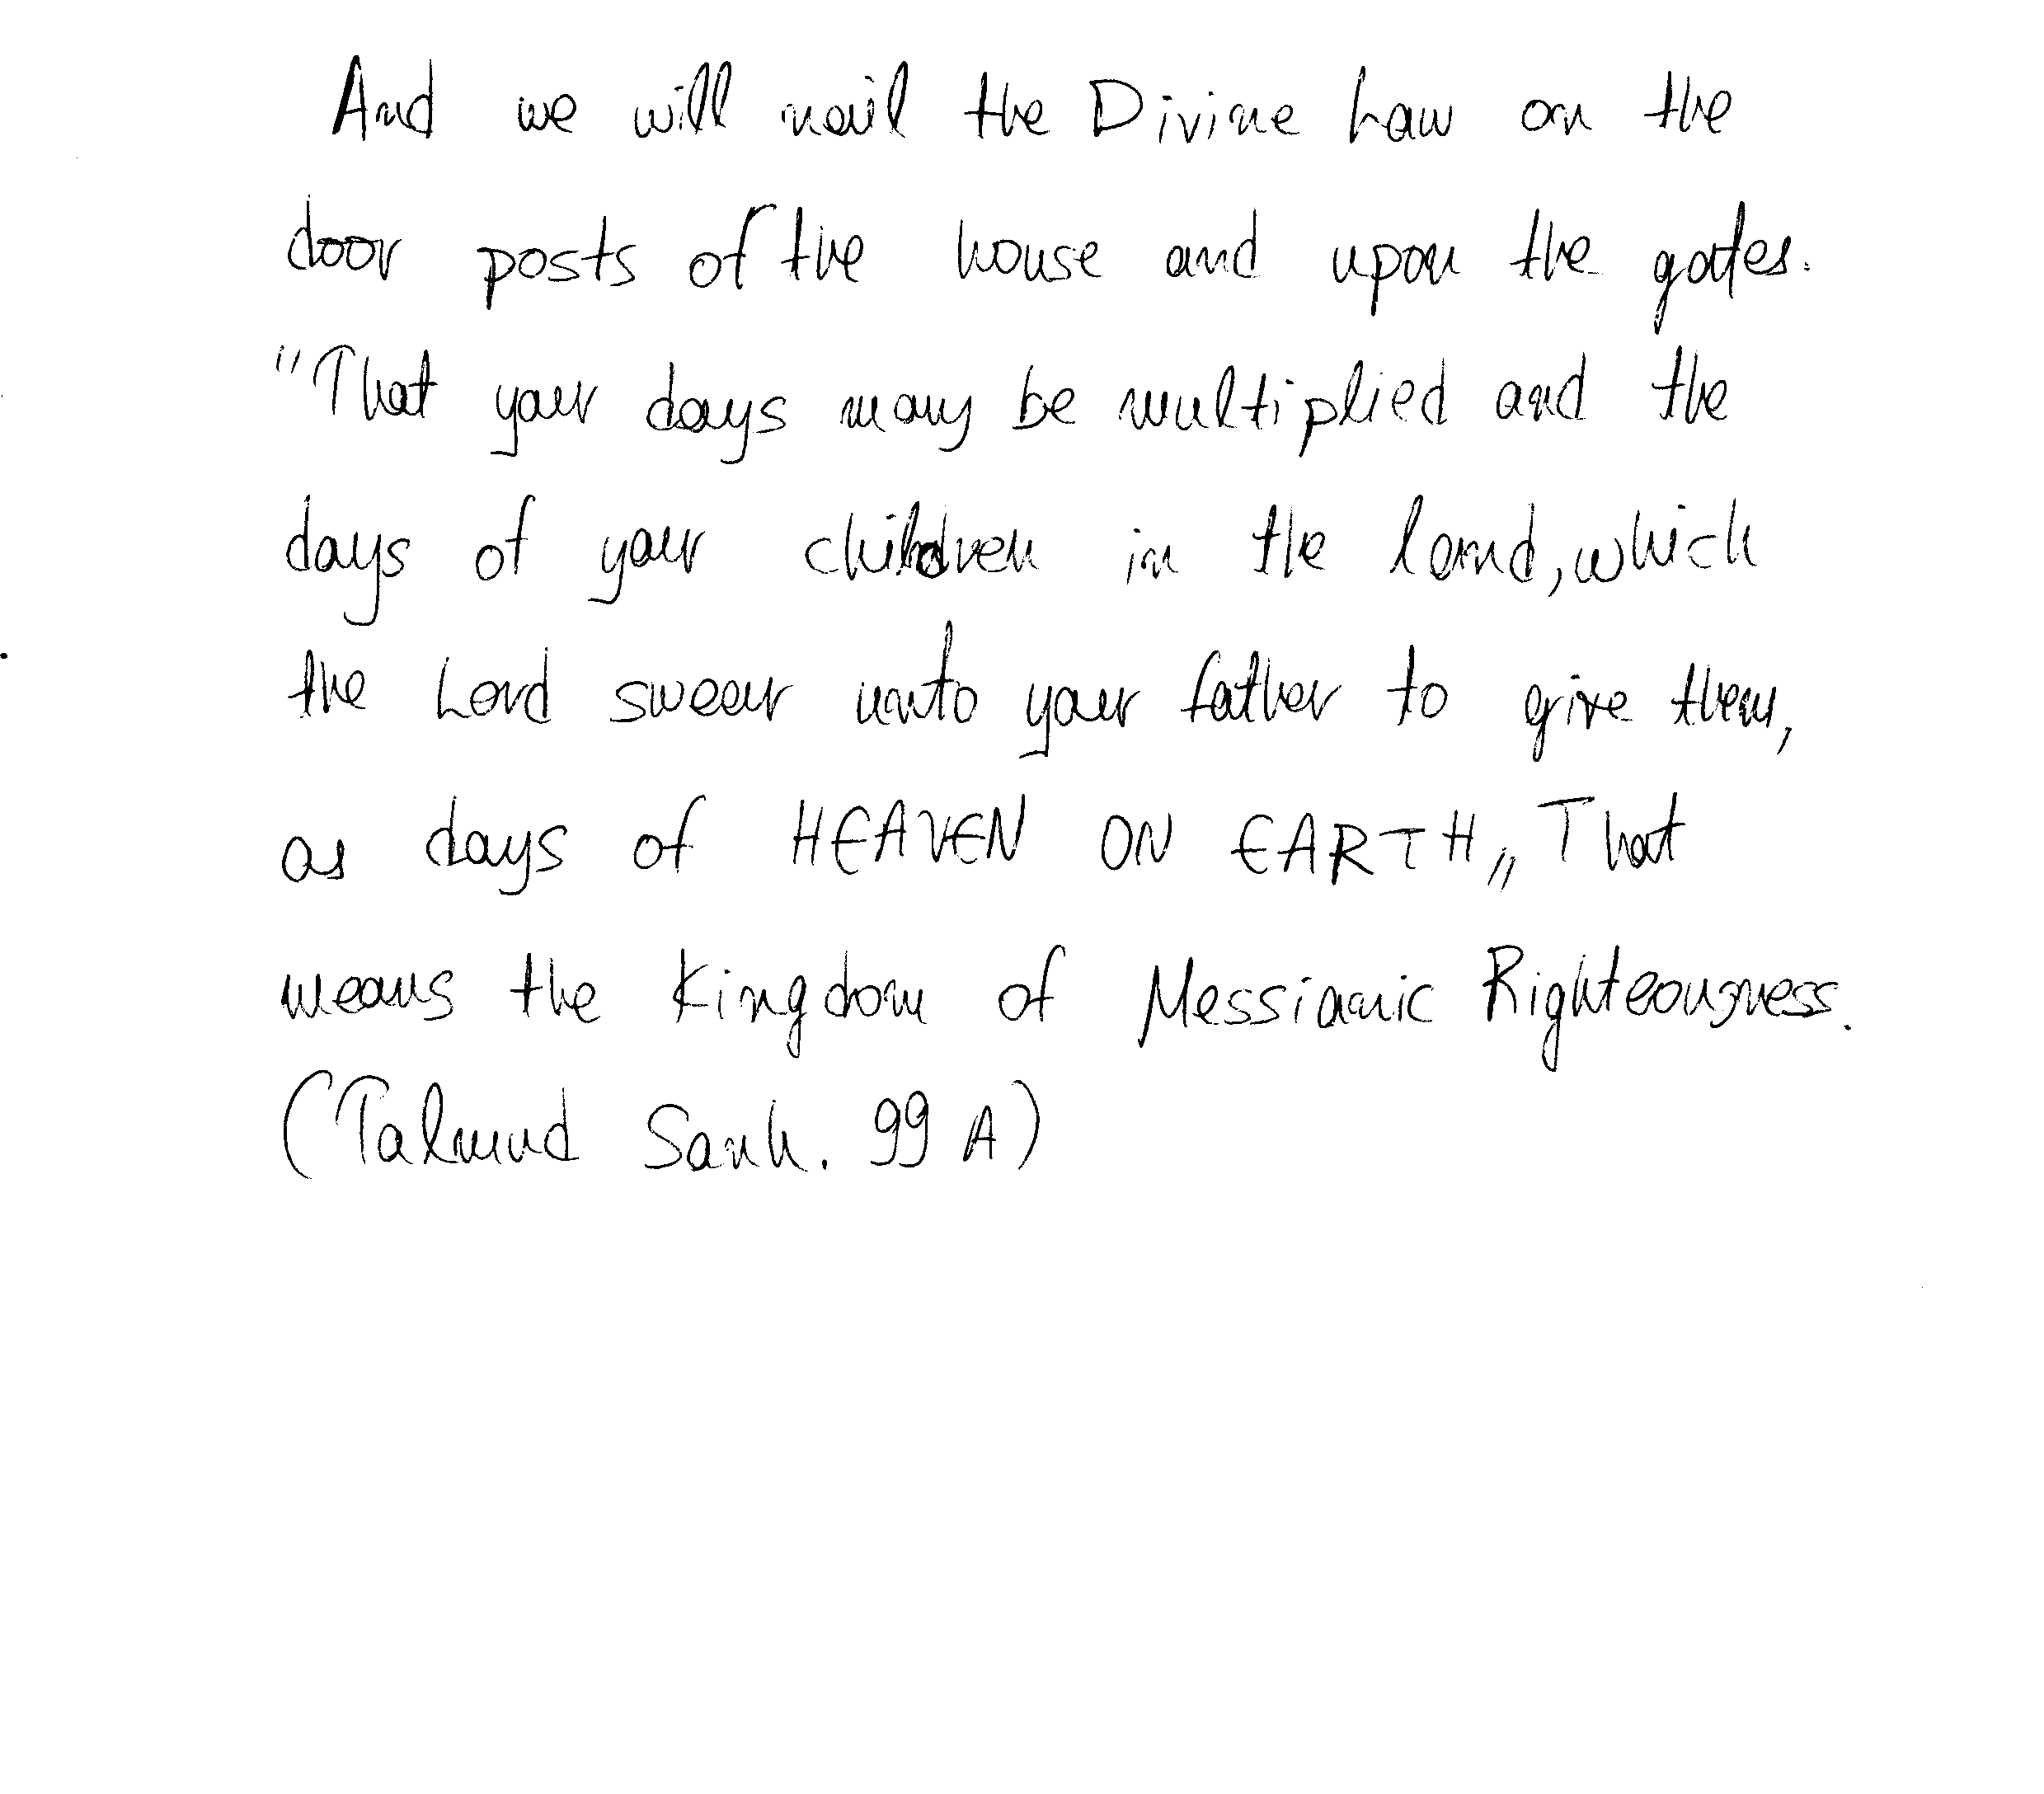 And we will nail the Divine Law on the
door posts of the house and upon the gates.
"That your days may be multiplied and the
days of your children in the land, which
the Lord swear unto your father to give them,
as days of HEAVEN ON EARTH„ That
means the Kingdom of Messianic Righteousness.
(Talmud Sanh. 99 A)